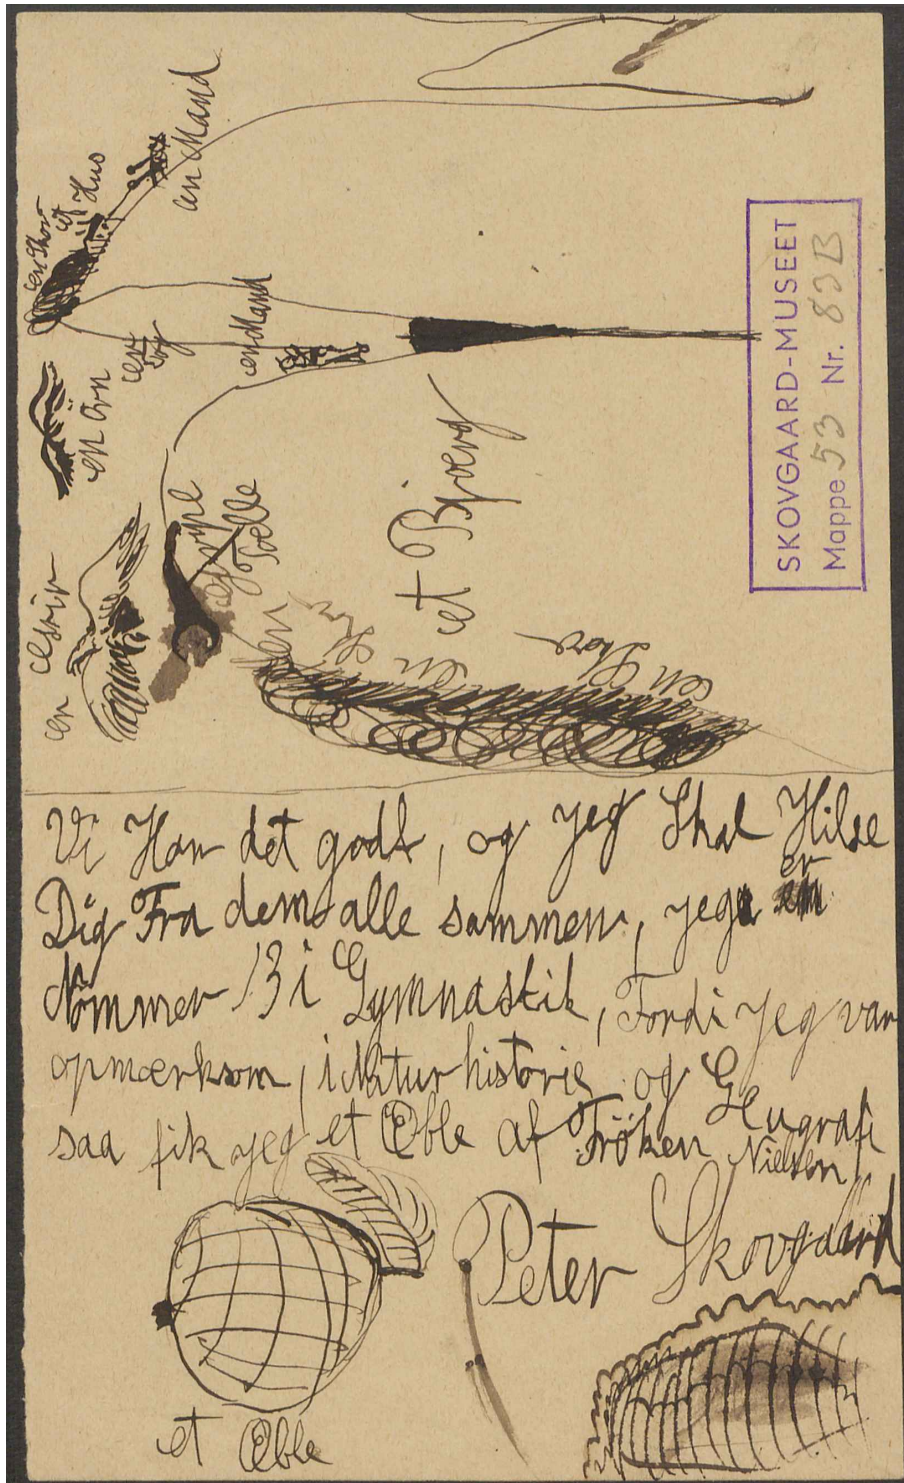 en Mand
et Hus
en Skov
en Mand
en Örn
et Bjoerg
en
en Skov
SKOVGAARD-MUSEET
Mappe 53 Nr. 82B
Vi Har det godt, og jeg Skal Hilse
Dig Fra dem alle sammen, jeg er
Nömmer 13 i Gymnastik, Fordi jeg var
opmærksom, i Naturhistorie og Geugrafi
saa fik jeg et Æble af Fröken Nielsen
Peter Skovgaard
et Æble